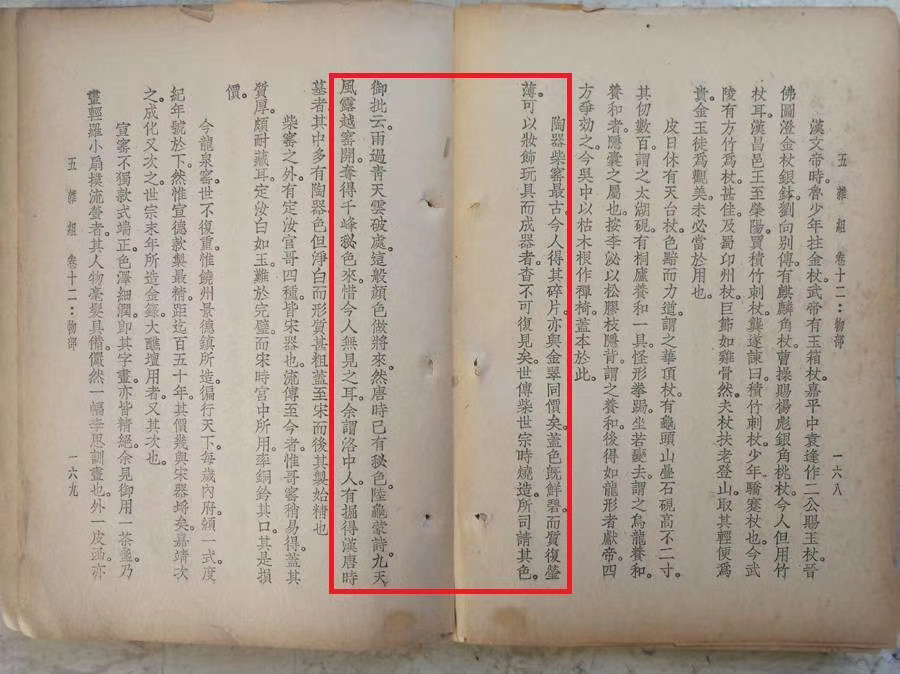 五雜組 卷十二：物部 一六八
漢文帝時。魯少年拄金杖。武帝有玉箱杖。嘉平中袁逢作二公賜玉杖。晉
佛圖澄金杖銀鉢。劉向別傳有麒麟角杖。曹操賜楊彪銀角桃杖。今人但用竹
杖耳。漢昌邑王至滎陽。買積竹刺杖。龔遂諫曰。積竹刺杖。少年驕蹇杖也。今武
陵有方竹爲杖。甚佳。及蜀卭州杖。巨節如雞骨然。夫杖扶老登山。取其輕便。爲
貴。金玉徒爲觀美。未必當於用也。
皮日休有天台杖。色黯而力遒。謂之華頂杖。有龜頭山疊石硯。高不二寸。
其仞數百。謂之太湖硯。有桐廬養和一具。怪形拳跼。坐若變去。謂之烏龍養和。
養和者。隱囊之屬也。按李泌以松膠枝隱背。謂之養和。後得如龍形者獻帝。四
方爭效之。今吳中以枯木根作禪椅。蓋本於此。
陶器柴窰最古。今人得其碎片。亦與金翠同價矣。蓋色旣鮮碧。而質復瑩
薄。可以妝飾玩具。而成器者。杳不可復見矣。世傳柴世宗時燒造。所司請其色。
御批云。雨過青天雲破處。這般顏色做將來。然唐時已有秘色。陸龜蒙詩。九天
風露越窰開。奪得千峰秘色來。惜今人無見之耳。余謂洛中人有掘得漢唐時
墓者。其中多有陶器。色但淨白而形質甚粗。蓋至宋而後。其製始精也
柴窰之外。有定汝官哥四種。皆宋器也。流傳至今者。惟哥窰稍易得。蓋其
質厚。頗耐藏耳。定汝白如玉。難於完璧。而宋時宮中所用。率銅鈐其口。其是損
價。
今龍泉窰世不復重。惟饒州景德鎮所造。徧行天下。每歲內府頒一式度
紀年號於下。然惟宣德款製最精。距迄百五十年。其價幾與宋器埒矣。嘉靖次
之。成化又次之。世宗末年所造金籙大醮壇用者。又其次也。
宣窰不獨款式端正。色澤細潤。卽其字畫。亦皆精絕。余見御用一茶盞。乃
畫輕羅小扇撲流螢者。其人物毫髮具備。儼然一幅李思訓畫也。外一皮函。亦
五雜組 卷十二：物部 一六九